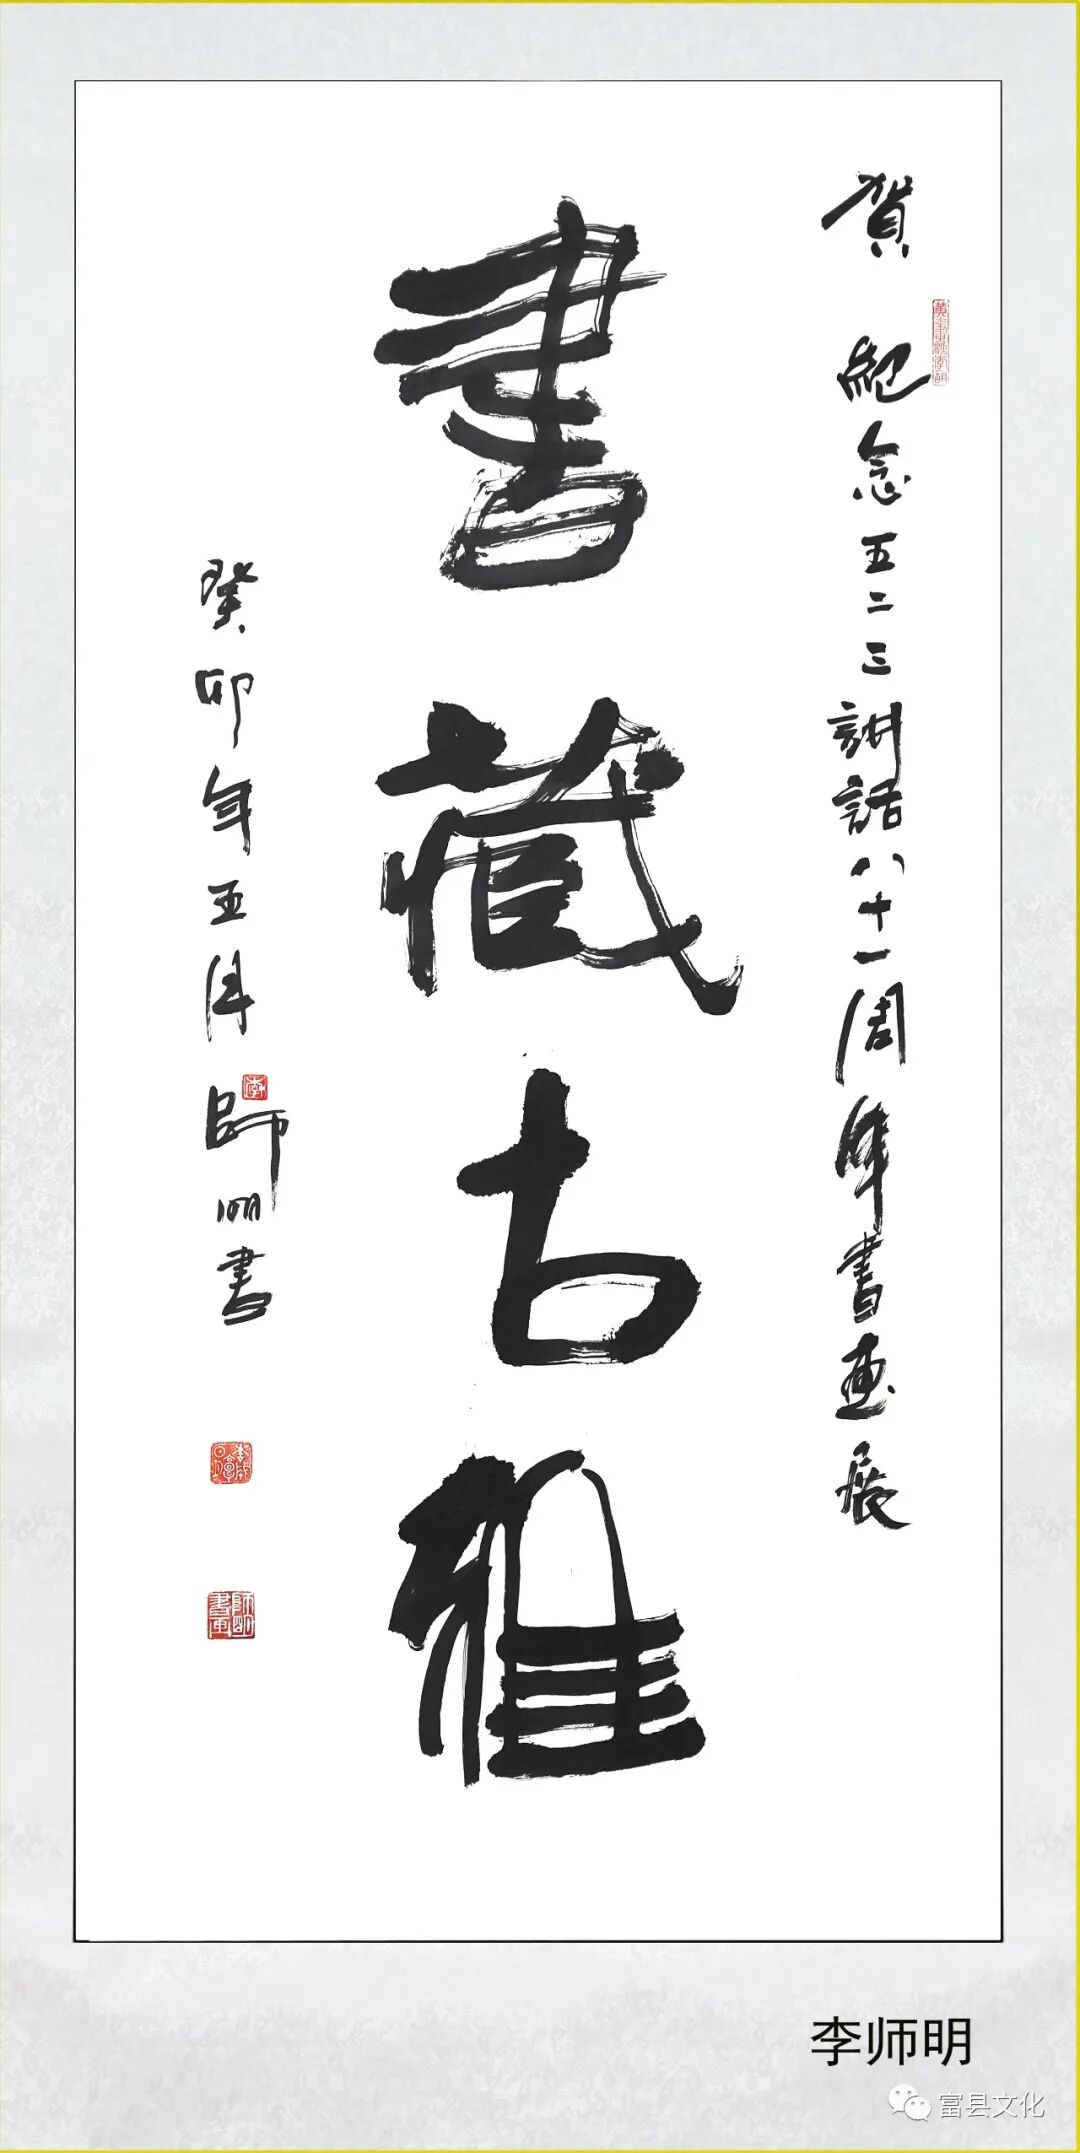 賀 紀念五二三講話八十一周年書画展
書藏古雅
癸卯年五月師明書
師明書画
李师明
富县文化